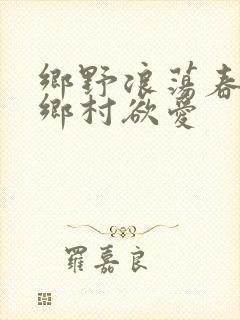 鄉野浪蕩春
鄉村欲愛
羅嘉良